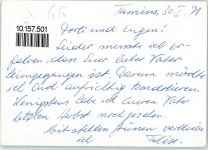 Tamins, 30. I. 71
10.157.501
Dorti und Eugen!
Leider musste ich er-
fahren, dass Euer lieber Vater
heimgegangen ist. Darum möchte
ich Euch aufrichtig kondolieren.
Wenigstens habe ich Euren Vater
letzten Herbst noch gesehen.
Mit stillen Grüssen verbleibe
ich Felix.